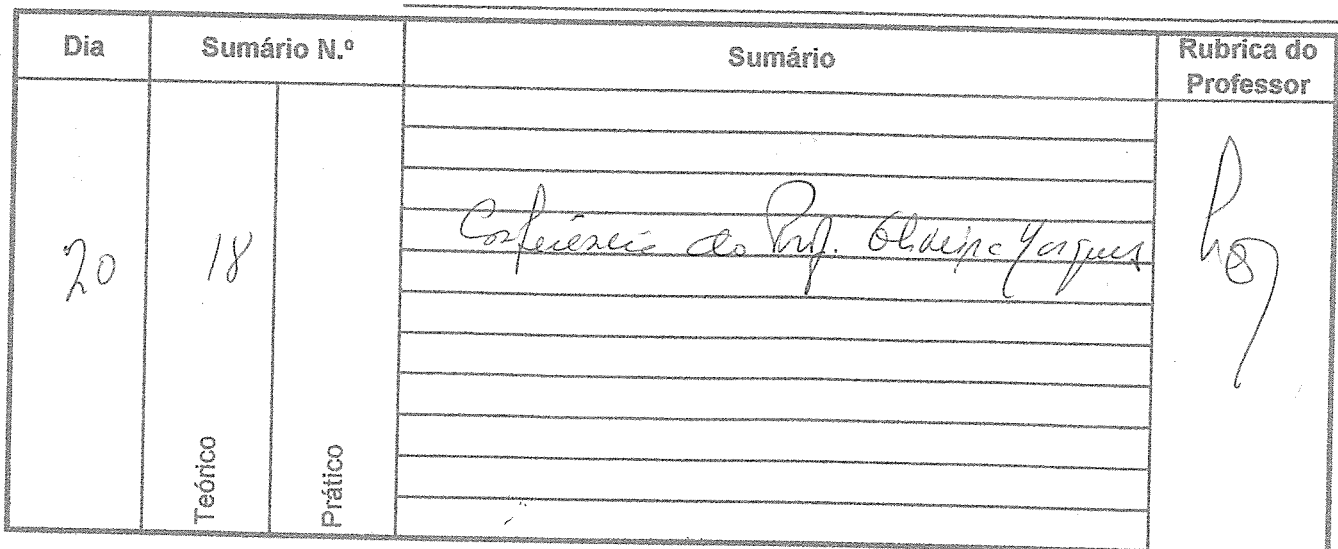 Dia Sumário N.º Sumário Rubrica do Professor
20 18 Conferência do Prof. Oliveira Marques
Teórico Prático